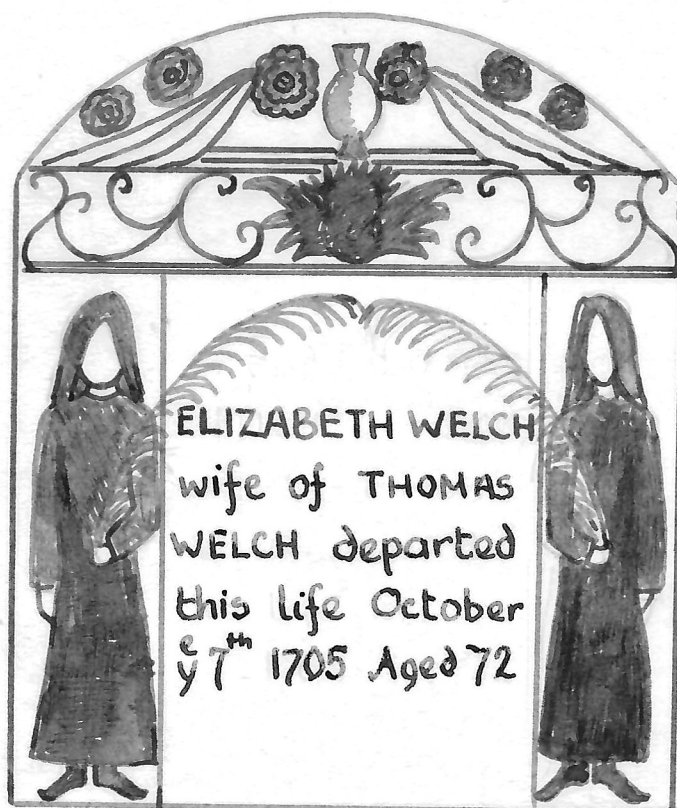 ELIZABETH WELCH
wife of THOMAS
WELCH departed
this life October
yᵉ 7ᵗʰ 1705 Aged 72